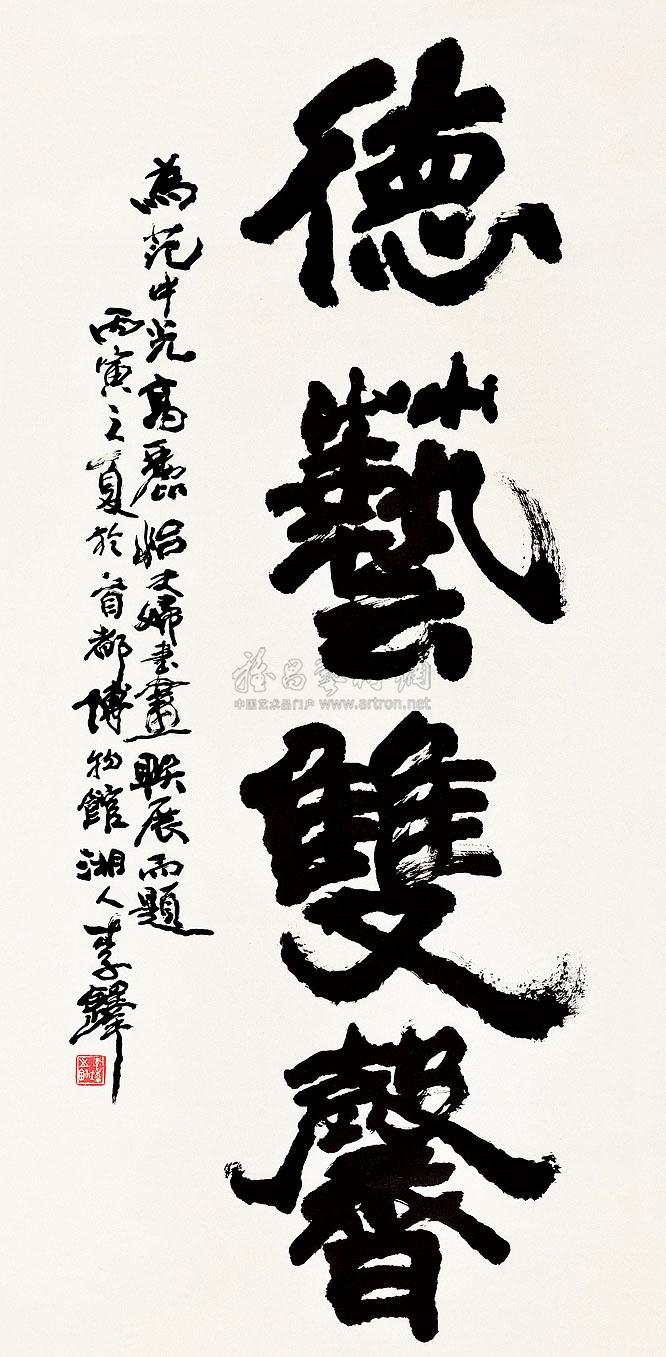 德藝雙馨
為范中光高麗怡夫婦書畫聯展而題
丙寅之夏於首都博物館湖人李鐸
雅昌藝術網
中国艺术品门户 www.artron.net